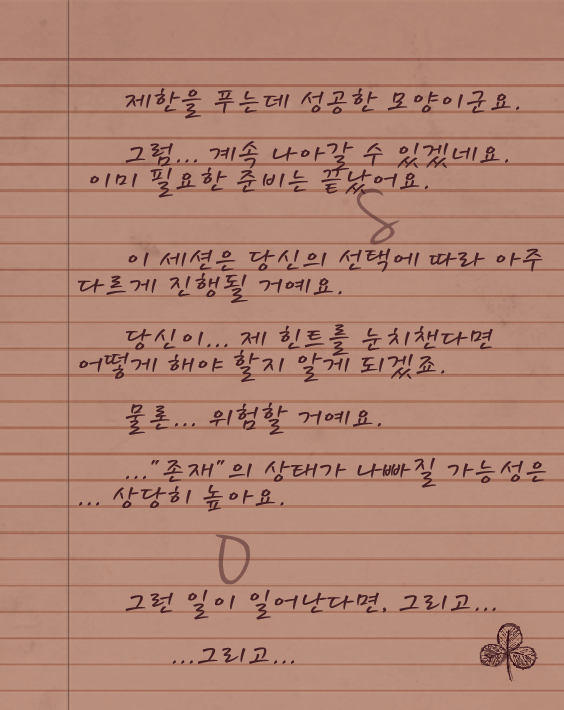 제한을 푸는데 성공한 모양이군요.
그럼... 계속 나아갈 수 있겠네요.
이미 필요한 준비는 끝났어요.
S
이 세션은 당신의 선택에 따라 아주
다르게 진행될 거예요.
당신이... 제 힌트를 눈치챈다면
어떻게 해야 할지 알게 되겠죠.
물론... 위험할 거예요.
..."존재"의 상태가 나빠질 가능성은
... 상당히 높아요.
D
그런 일이 일어난다면, 그리고...
...그리고...